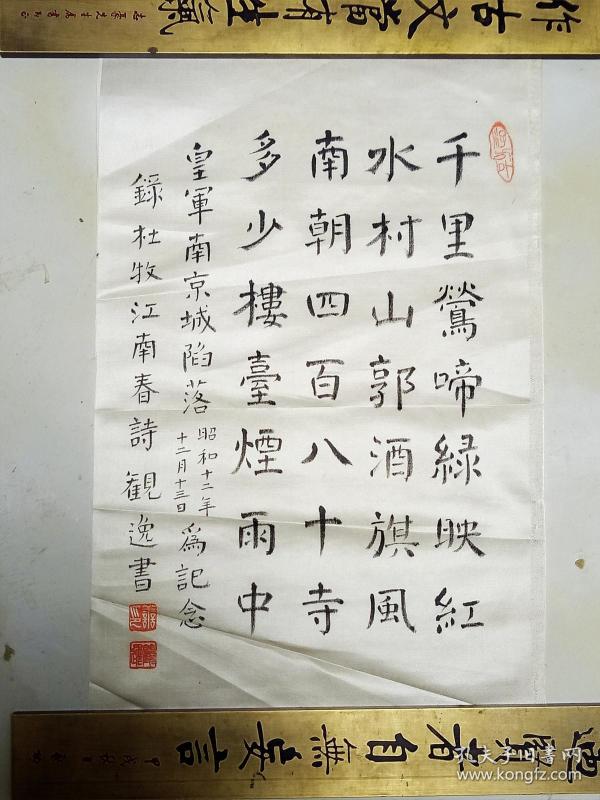 作古文當有生氣
千里鶯啼緑映紅
水村山郭酒旗風
南朝四百八十寺
多少樓臺煙雨中
皇軍南京城陷落
昭和十二年
十二月十三日
爲記念
錄杜牧江南春詩 觀逸書
賢者自無妄言
孔夫子旧书网
www.kongfz.com